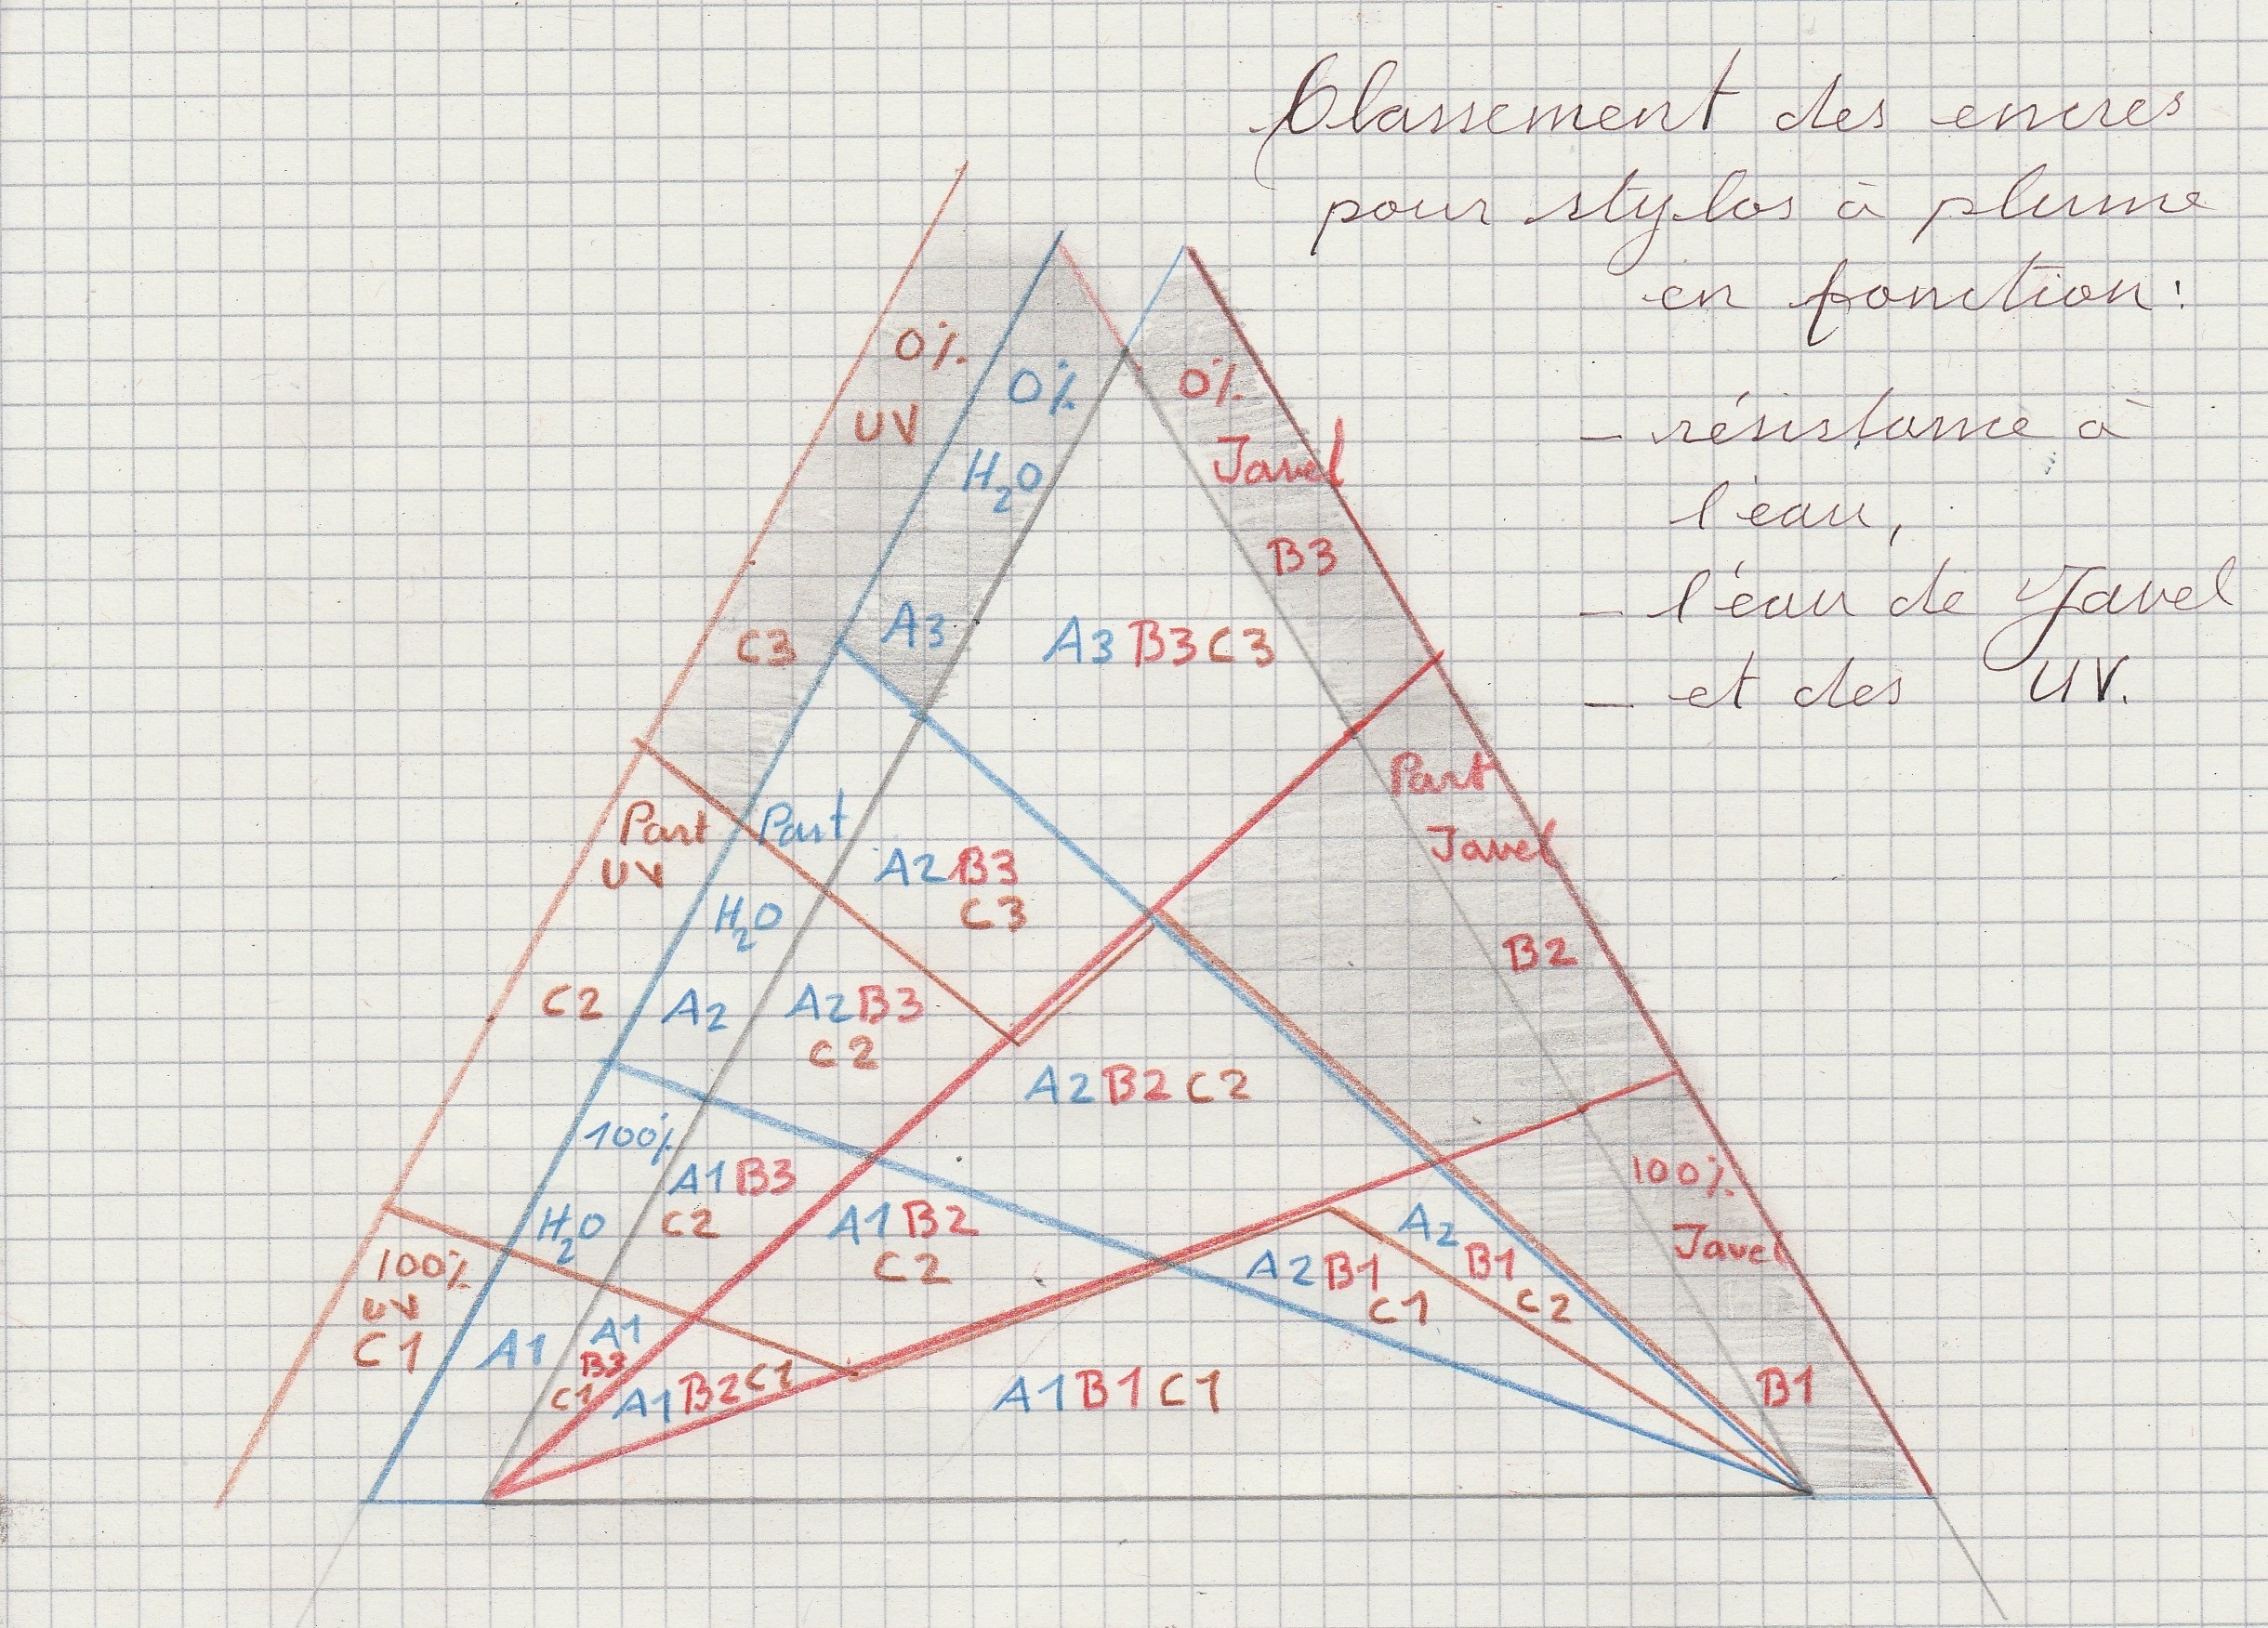 Classement des encres
pour stylos à plume
en fonction:
- résistance à
l'eau,
- l'eau de Javel
- et des UV.
0%
UV
C3
0%
H2O
A3
0%
Javel
B3
A3 B3 C3
Part
UV
C2
Part
H2O
A2
Part
Javel
B2
A2 B3
C3
A2 B3
C2
A2 B2 C2
100%
H2O
A1
A1 B3
C2
A1 B2
C2
A2 B1
C1
A2
B1
C2
100%
Javel
B1
100%
UV
C1
A1
B3
C1
A1 B2 C1
A1 B1 C1